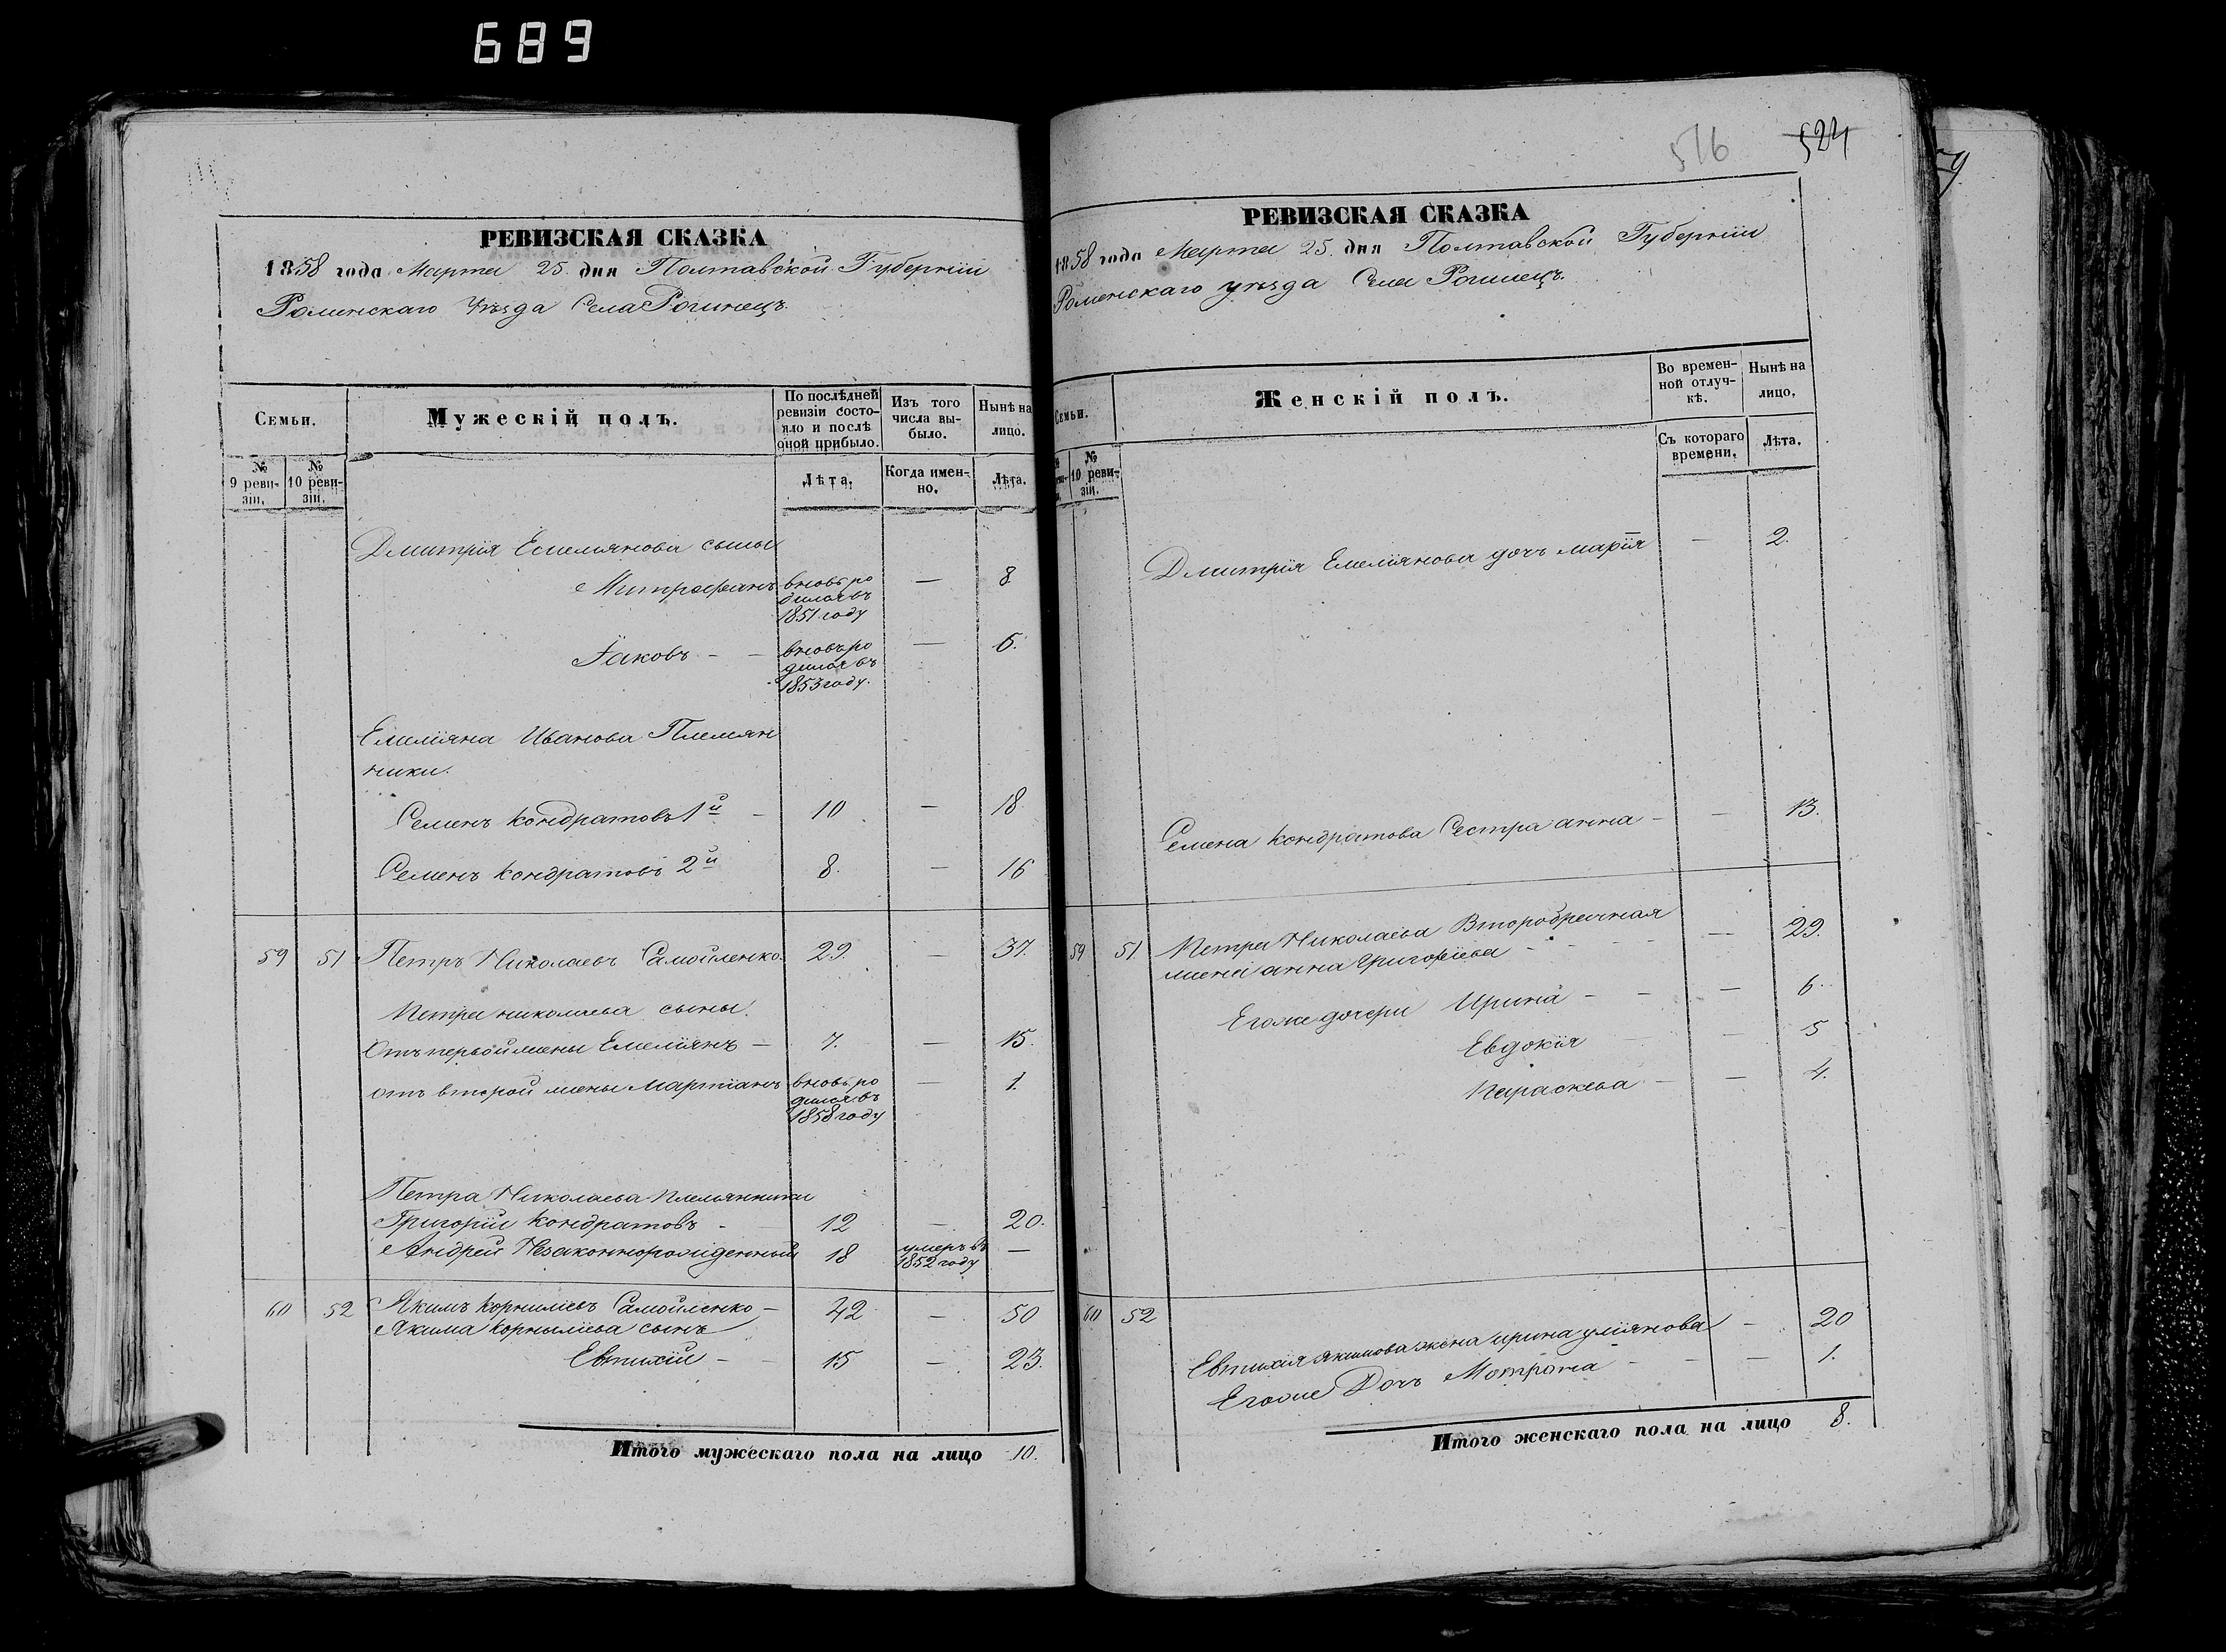 689
РЕВИЗСКАЯ СКАЗКА
1858 года Марта 25. дня Полтавской Губерніи
Роменскаго Уѣзда Села Рогинецъ.
Семьи.
Мужескій полъ.
По послѣдней ревизіи состояло и послѣ оной прибыло.
Изъ того числа выбыло.
Нынѣ на лицо.
№ 9 ревизіи.
№ 10 ревизіи.
Лѣта.
Когда именно.
Лѣта.
Дмитрія Емельянова сыны
Митрофанъ вновь ро — 8
дился въ
1851 году
Іаковъ – – вновь ро — 6.
дился въ
1853 году.
Емеліяна Иванова Племян
ники.
Семенъ Кондратовъ 1й – 10 — 18
Семенъ Кондратовъ 2й 8. — 16
59 51 Петръ Николаевъ Самойленко. 29. — 37.
Петра николаева сыны.
Отъ первой жены Емеліянъ — 7. — 15.
отъ второй жены Мартіанъ вновь ро — 1.
дился въ
1858 году
Петра Николаева племянники
Григорій Кондратовъ – 12 — 20.
Андрей Незаконнорожденный 18 умеръ въ —
1852 году
60 52 Якимъ Корниліевъ Самойленко – 42 — 50
Якима Корныліева сынъ
Евтихій – – 15 — 23.
Итого мужескаго пола на лицо 10.
516 524
РЕВИЗСКАЯ СКАЗКА
1858 года Марта 25. дня Полтавской Губерніи
Роменскаго уѣзда Села Рогинецъ.
Семьи.
Женскій полъ.
Во временной отлучкѣ.
Нынѣ на лицо.
10 ревизіи.
Съ котораго времени.
Лѣта.
Дмитрія Емеліянова дочь марія — 2.
Семена Кондратова Сестра анна – — 13.
59 51 Петра Николаева Второбрачная — 29.
жена анна Григоріева – – –
Егоже дочери Ирина – – — 6.
Евдокія — 5
Параскева – — 4.
60 52
Евтихія Якимова жена ирина уліянова – 20
Егоже Дочь Матрона – – – 1.
Итого женскаго пола на лицо 8.